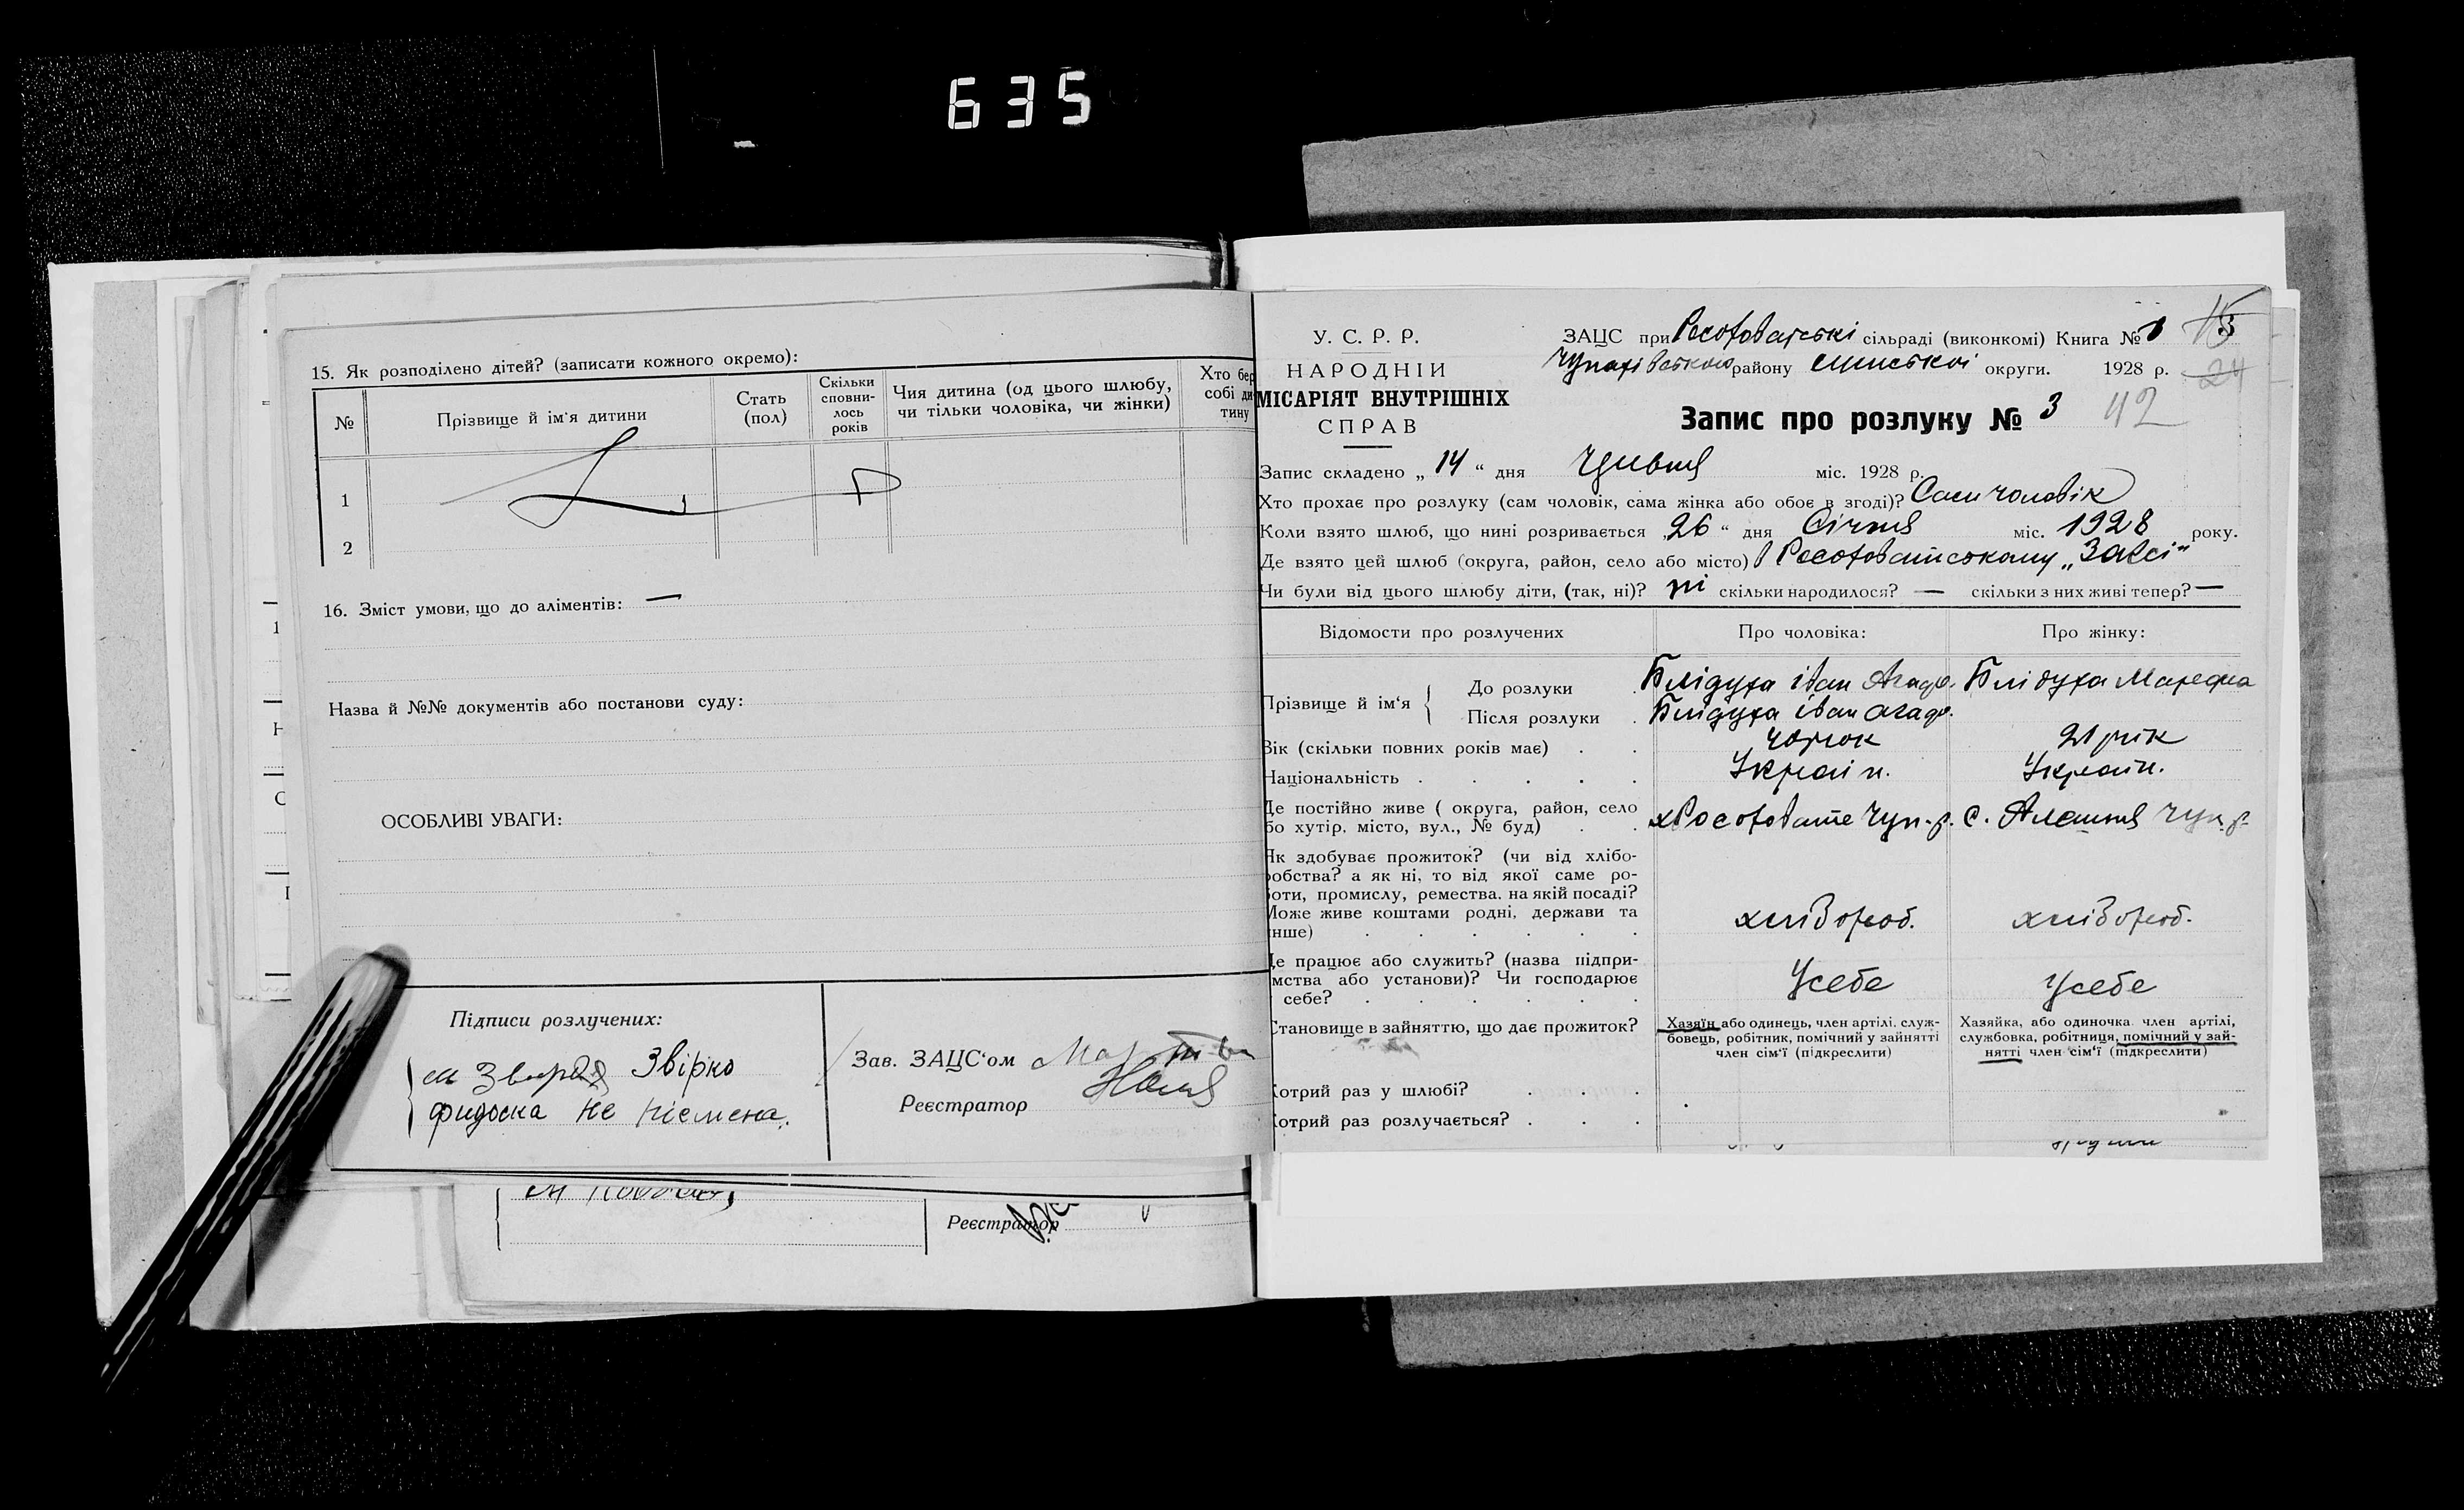 635
15. Як розподілено дітей? (записати кожного окремо):
№
Прізвище й ім'я дитини
Стать (пол)
Скільки сповни- лось років
Чия дитина (од цього шлюбу, чи тільки чоловіка, чи жінки)
Хто бер собі ди- тину
1
2
16. Зміст умови, що до аліментів: —
Назва й №№ документів або постанови суду:
ОСОБЛИВІ УВАГИ:
Підписи розлучених:
Звірко
не písмена.
Зав. ЗАЦС'ом
Реєстратор
Реєстратор
У. С. Р. Р.
НАРОДНІИ
МІСАРІЯТ ВНУТРІШНІХ
СПРАВ
ЗАЦС при сільраді (виконкомі) Книга №
району округи. 1928 р. 24
Запис про розлуку № 3 42
Запис складено „ 14 “ дня міс. 1928 р.
Хто прохає про розлуку (сам чоловік, сама жінка або обоє в згоді)? Сам чоловік
Коли взято шлюб, що нині розривається „ 26 “ дня Січня міс. 1928 року.
Де взято цей шлюб (округа, район, село або місто)
Чи були від цього шлюбу діти, (так, ні)? ні скільки народилося? — скільки з них живі тепер? —
Відомости про розлучених
Про чоловіка:
Про жінку:
Прізвище й ім'я
До розлуки . Блідуха Іван Блідуха
Після розлуки . Блідуха Іван
Вік (скільки повних років має) . . 21 рік
Національність . . . . . Украін. Украін.
Де постійно живе ( округа, район, село
бо хутір, місто, вул., № буд) . . Чуп. р. с. Алешня Чуп. р.
Як здобуває прожиток? (чи від хлібо-
робства? а як ні, то від якої саме ро-
оти, промислу, ремества, на якій посаді?
Може живе коштами родні, держави та
нше) . . . . . . хлібороб. хлібороб.
Де працює або служить? (назва підпри-
мства або установи)? Чи господарює
себе? . . . . . . У себе У себе
Становище в зайняттю, що дає прожиток?
Хазяїн або одинець, член артілі, служ-
бовець, робітник, помічний у зайнятті
член сім'ї (підкреслити)
Хазяйка, або одиночка член артілі,
службовка, робітниця, помічний у зай-
нятті член сім'ї (підкреслити)
Котрий раз у шлюбі? . . .
Котрий раз розлучається? . . .